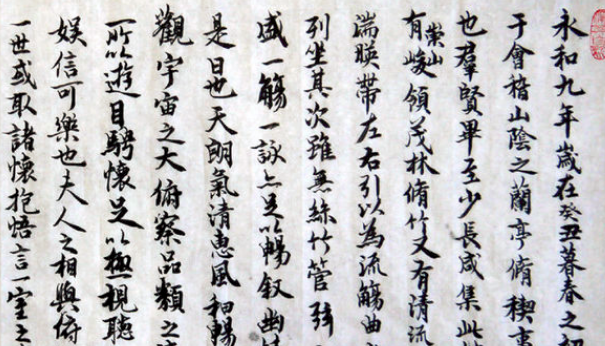 永和九年歲在癸丑暮春之初
于會稽山陰之蘭亭脩稧事
也羣賢畢至少長咸集此
有崇山峻領茂林脩竹又有清流
湍暎帶左右引以為流觴曲
列坐其次雖無絲竹管弦
盛一觴一詠亦足以暢叙幽
是日也天朗氣清惠風和暢
觀宇宙之大俯察品類之
所以遊目騁懷足以極視聽
娛信可樂也夫人之相與俯
一世或取諸懷抱悟言一室之